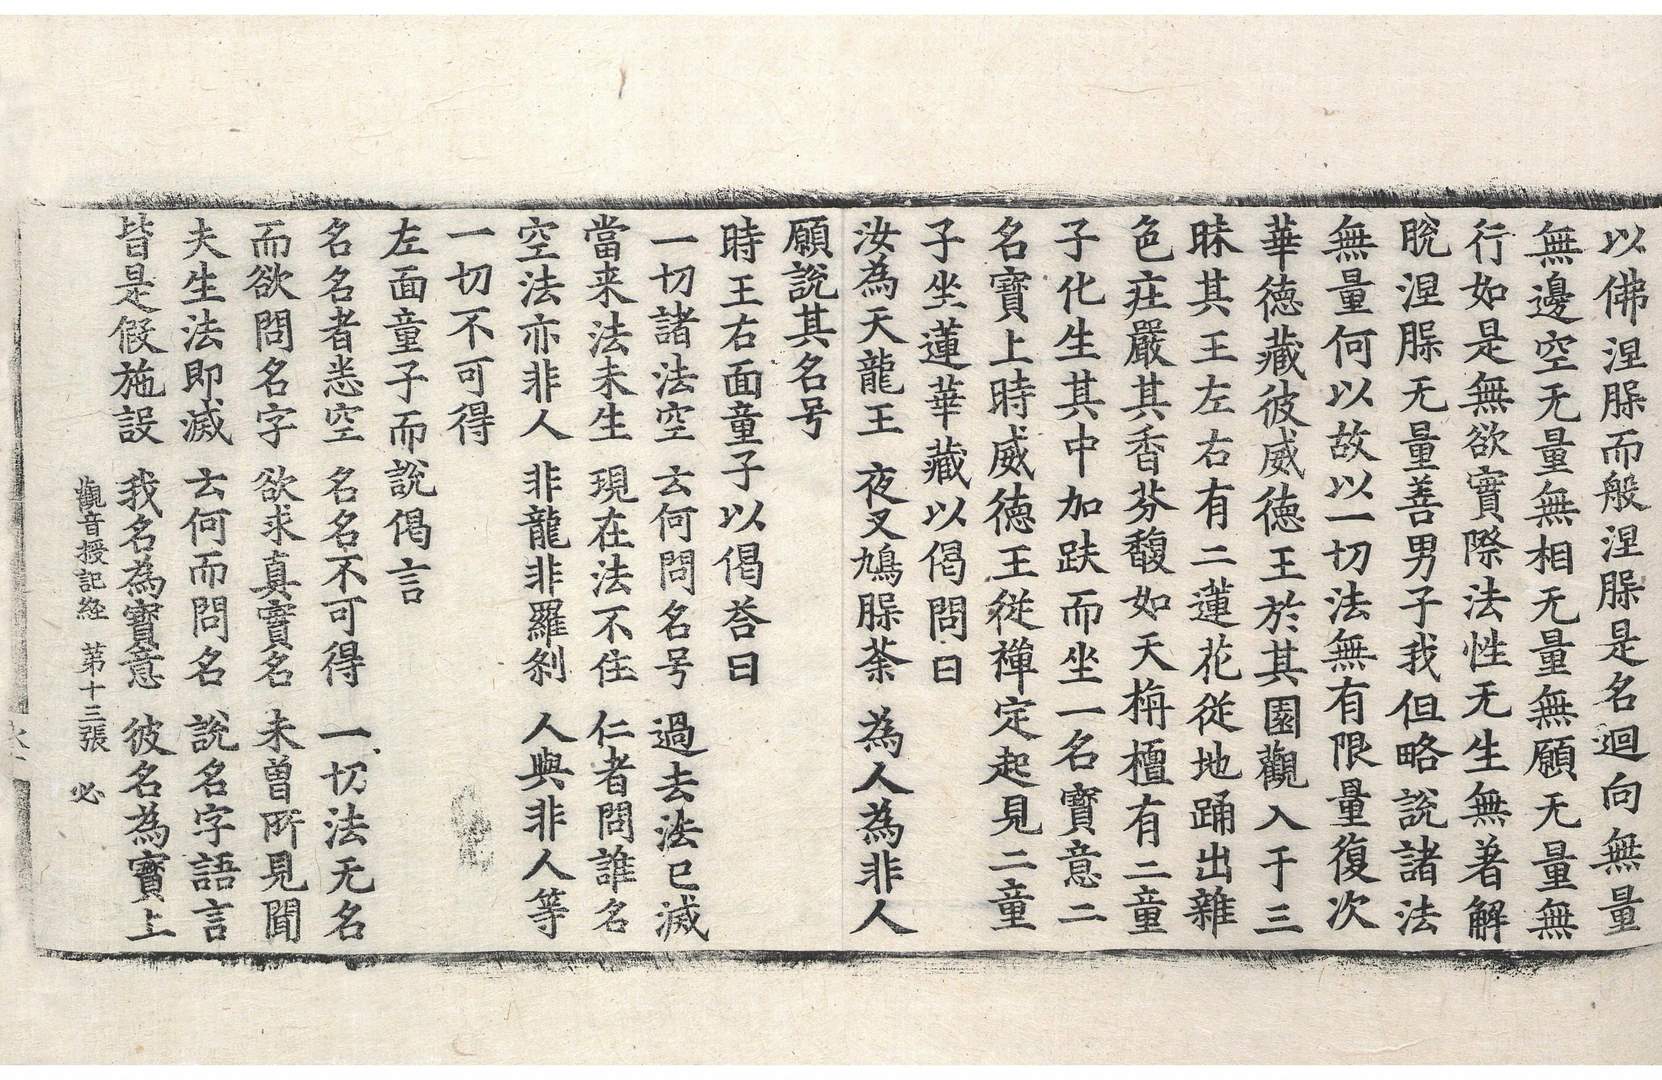 以佛涅脲而般涅脲是名迴向無量
無邊空无量無相无量無願无量無
行如是無欲實際法性无生無著解
脫涅脲无量善男子我但略說諸法
無量何以故以一切法無有限量復次
華德藏彼威德王於其園觀入于三
昧其王左右有二蓮花従地踊出雜
色庄嚴其香芬馥如天栴檀有二童
子化生其中加趺而坐一名寶意二
名寶上時威德王従禪定起見二童
子坐蓮華藏以偈問曰
汝為天龍王　夜叉鳩脲荼　為人為非人
願說其名号
時王右面童子以偈荅曰
一切諸法空　云何問名号　過去法已滅
當来法未生　現在法不住　仁者問誰名
空法亦非人　非龍非羅刹　人與非人等
一切不可得
左面童子而說偈言
名名者悉空　名名不可得　一切法无名
而欲問名字　欲求真實名　未曾所見聞
夫生法即滅　云何而問名　說名字語言
皆是假施設　我名為寶意　彼名為寶上
觀音授記経　第十三張　必